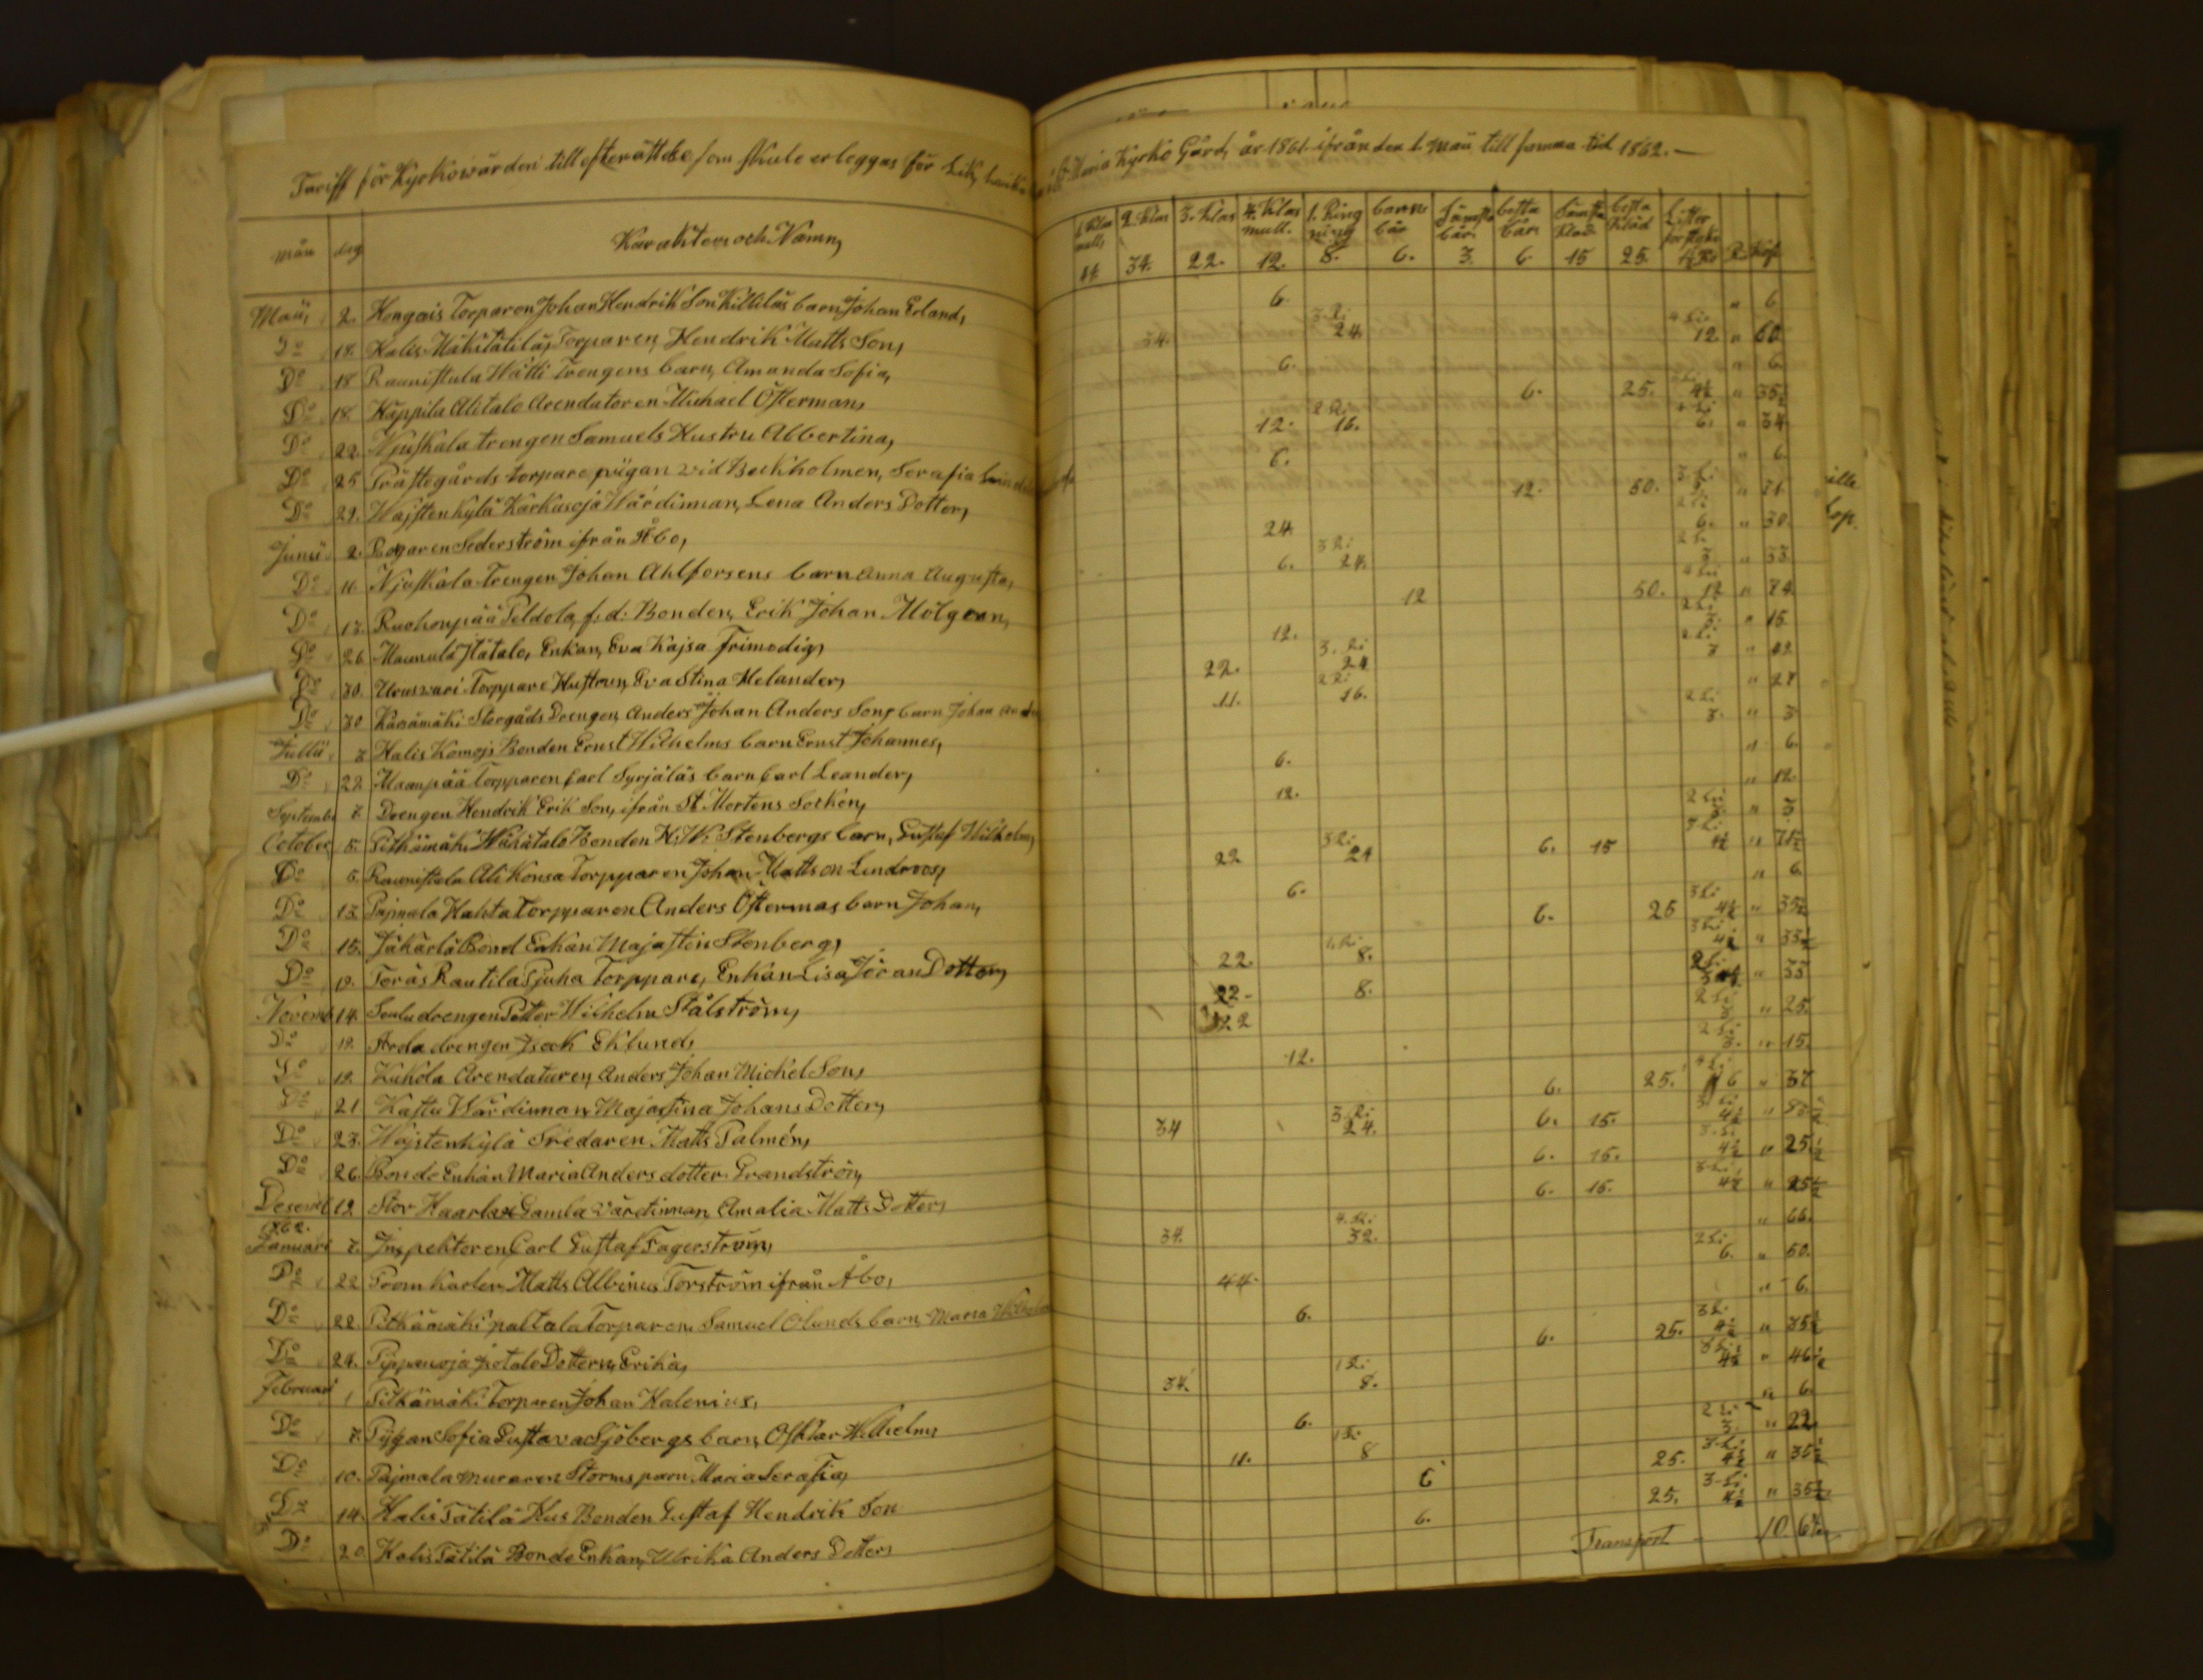 Tariff för Kyrkowärden till efterättelse som skule erleggas för Lik, S:t Maria Kyrko Gård, år 1861 ifrån den 1. Maii till samma tid 1862.—
mån dag Karakters och Namn, 1. Klas mull, 2. Klas 3. Klas 4. Klas mull. 1. Ring ning barns bår Sämsta bår. bästa bår. Sämsta Kläd bästa Kläd R. Kop.
34. 22. 12. 8. 6. 3. 6. 15 25.
Maii, 2. Kongais Torparen Johan Hendrik Son Killiläs barn Johan Erland, 6. " 6.
Do 18. Halis Mäkitätilä, Torparen, Hendrik Matts Son, 34. 3 Ri 24. 12. " 60
Do 18 Raunistula Hätti Trengens barn, Amanda Sofia, 6. " 6.
Do 18. Käppila Alitalo Arendatoren Michael Österman, 6. 25. 4½ " 35½
Do 22. Njuskala trengen Samuels Hustru Albertina, 12. 2 Ri 16. 6. " 34
Do 25 Prästegårds torpare piigan vid Bockholmen, Serafia 6. " 6.
Do 29. Wäjstenkylä Karkusoja Wärdinnan, Lena Anders Dotter, 12. 50. " 71.
Junii 2. Bogaren Sederström ifrån Åbo, 24 6. " 30.
Do 11. Njuskala Trengen Johan Ahlforsens barn Anna Augusta, 6. 3 Ri 24. 3 " 33.
Do 13. Ruohonpää Peldola, f:d: Bonden, Erik Johan Mölgren, 12 50. 12 " 74.
Do 26. Maunula Jtätalo, Enkan, Eva Kajsa Frimodig, 12. 3. " 15.
Do 30. Urusvuori Torppare Hustrun, Eva Stina Helander, 22. 3. Ri 24
Do 30 Kärsämäki Storgåds Drengen, Anders Johan Anders Sons barn Johan 11. 2 Ri 16. " 27
Jullii 3 Halis Komojs Bonden Ernst Wilhelms barn Ernst Johannes, 3. " 3
Do 22. Maanpää Torpparen Carl Syrjäläs barn Carl Leander, 6. " 6.
Septembr 7. Drengen Hendrik Erik Son, ifrån St Mortens Socken, 12. " 12.
October 5. Pitkämäki Wähätalo Bonden H:W: Stenbergs barn, Gustaf Wilhelm, 3 " 3.
Do 5. Raunistula Ali Konsa Torpparen Johan Mattson Lindroos, 22 3 Ri 24 6. 15 4½ " 71½
Do 13. Pajmala Hahta Torpparen Anders Östermas barn Johan, 6. " 6.
Do 15. Jäkärlä Bond Enkan Maja Stin Stenberg, 6. 25 4½ " 35½
Do 19. Teräs Rautila Pjuha Torppare, Enkan Lisa Jöran Dotter, 22. 1. Ri 8. 4½
Novemb 14. Soulu drengen Petter Wilhelm Stålström, 22 8. " 33
Do 19. Arola drengen Jsack Eklund, 22 3 " 25.
Do 19. Kukola Arendaturen, Anders Johan Michel Son, 12. 3. " 15.
Do 21 Kastu Wärdinnan, Maja Stina Johans Dotter, 6. 25. 6 " 37
Do 23. Wäjstenkylä Sredaren Matts Palmén, 34 3. Ri 24. 6. 15. 4½
Do 26. Bonde Enkan Maria Anders dotter Grandström, 6. 15. 4½ " 25½
Desemb 12 Stor Haarlax Gamla Värdinnan Amalia Matts Dotter, 6. 15. 4½ " 25½
1862.
Januari 7. Jnspektoren Carl Gustaf Fagerström, 34. 4. Ri 32. " 66.
Do 22. From Karlen Matts Albinus Torström ifrån Åbo, 44. 6. " 50.
Do 22. Pitkämäki paltala Torparen Samuel Ölunds barn, Maria 6. " 6.
Do 24. Pippanoja Jsotalo Dottern, Erika, 6. 25. 4½ " 35½
Februari 1 Pitkämäki Torparen Johan Kalenius, 34. 1 Ri 8. 4½ " 46½
Do 7. Pigan Sofia Gustava Sjöbergs barn, Oskar Wilhelm, 6. " 6.
Do 10. Pajmala muraren Storms barn Maria Serafia, 11. 1 Ri 8 3. " 22.
Do 14. Halis Tätilä Hus Bonden Gustaf Hendrik Son 6 25. 4½ " 35½
Do 20 Halis Tätilä Bonde Enkan, Ulrika Anders Dotter, 6. 25. 4½ " 35½
Transport -